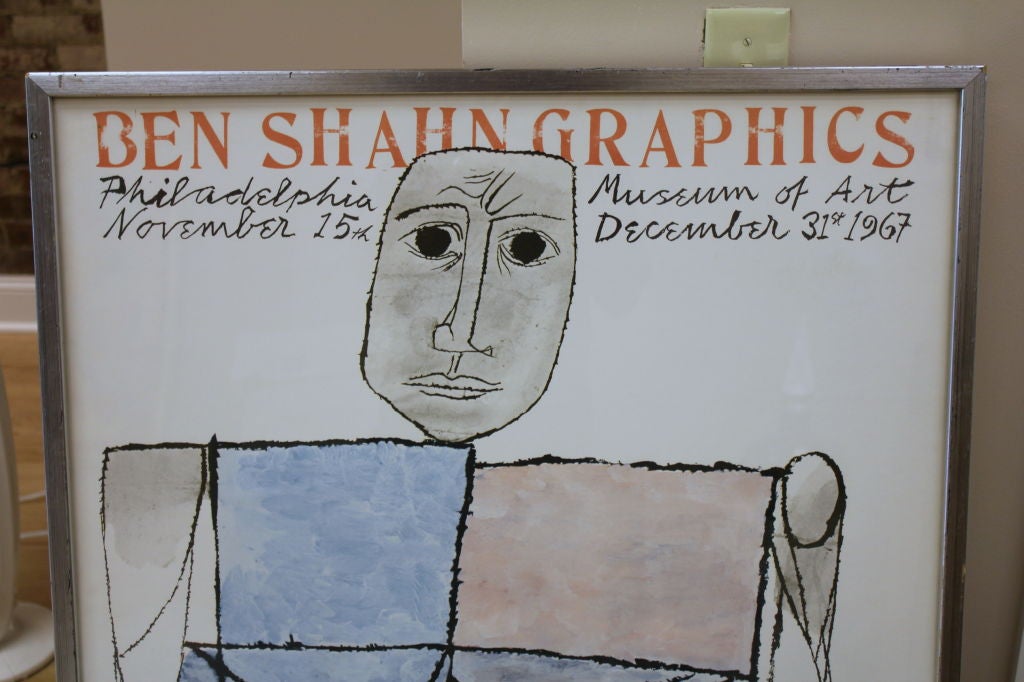 BEN SHAHN GRAPHICS
Philadelphia Museum of Art
November 15th December 31st 1967